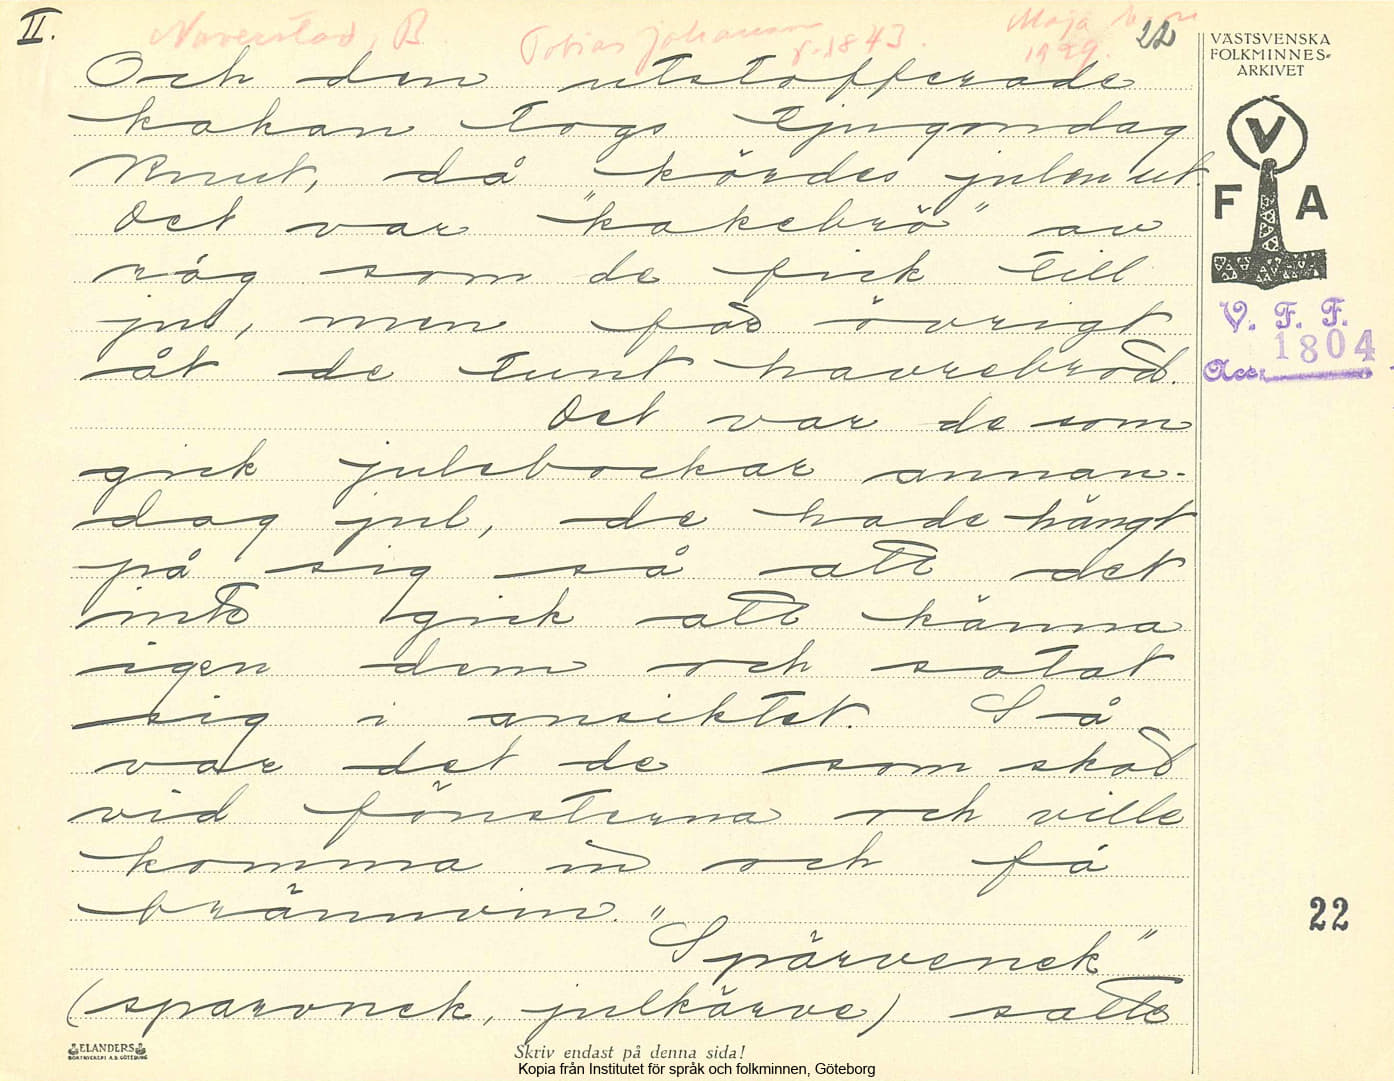 II.
Naverstad, B.
Tobias Johansson
f. 1843.
Maja
1929.
22
VÄSTSVENSKA
FOLKMINNES-
ARKIVET
V
F A
V. F. F.
1804
Acc.
Och den utstofferade
kakan togs tjugondag
Knut, då "kördes julen ut".
Det var "kakebrö" av
råg som de fick till
jul, men för övrigt
åt de tunt havrebröd.
Det var de som
gick julebockar annan-
dag jul, de hade hängt
på sig så att det
inte gick att känna
igen dem och sotat
sig i ansiktet. Så
var det de som sköt
vid fönsterna och ville
komma in och få
brännvin.
"Spärvenek"
(sparvnek, julkärve) satte
22
ELANDERS
BOKTRYCKERI A.B. GÖTEBORG
Skriv endast på denna sida!
Kopia från Institutet för språk och folkminnen, Göteborg